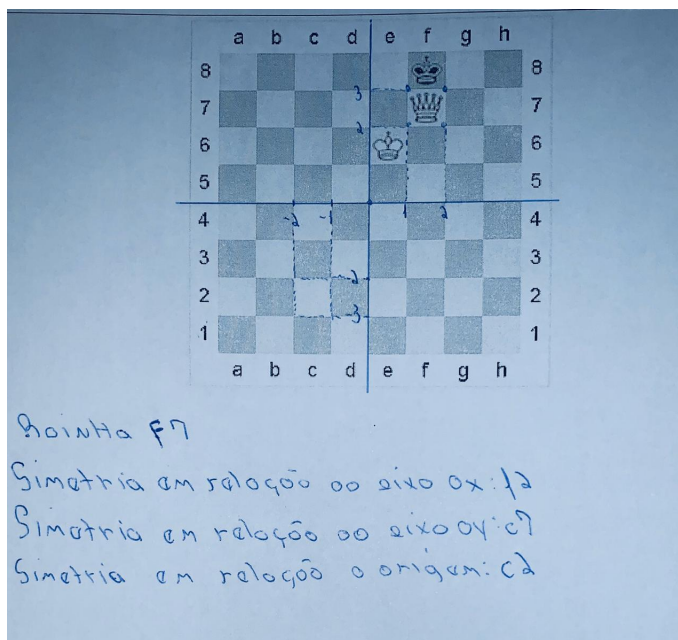 a b c d e f g h
8 8
7 3 7
6 2 6
5 5
4 -2 -1 1 2 4
3 3
2 -2 2
1 -3 1
a b c d e f g h
Rainha F7
Simetria em relação ao eixo ox: f2
Simetria em relação ao eixo oy: c7
Simetria em relação a origem: C2